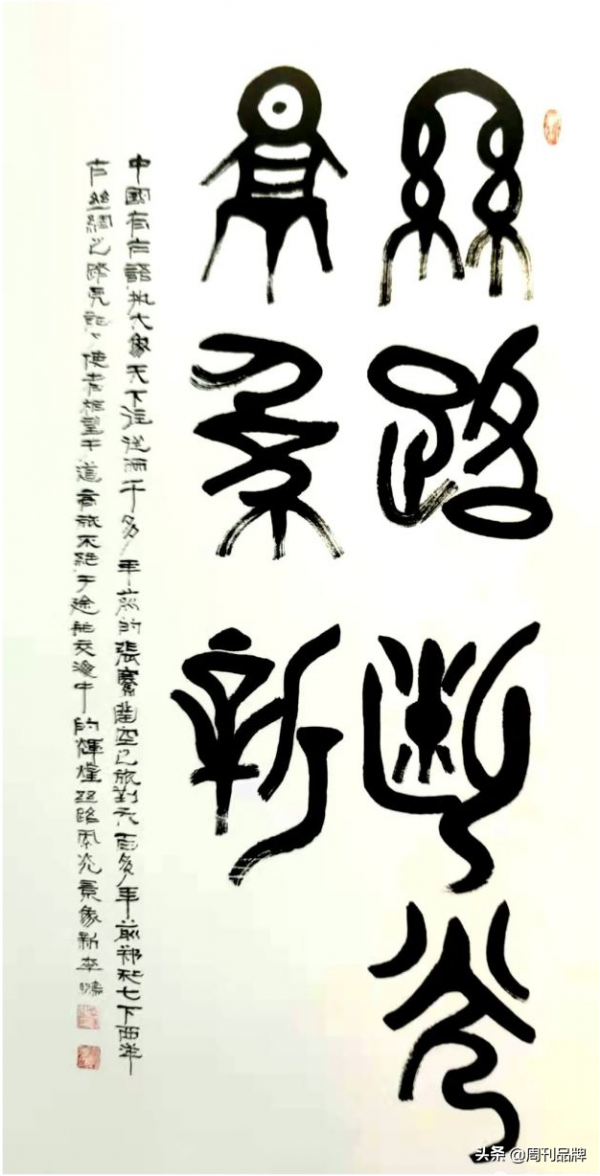 絲路風光
景象新
中國有古語執大象天下往從兩千多年前的張騫鑿空之旅到六百多年前鄭和七下西洋
古丝綢之路見証了使者相望于道商旅不絕于途的交中的輝煌丝路風光景象新李
头条 @周刊品牌